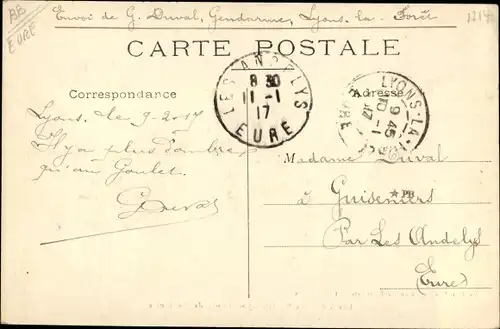 BB
EURE
Envoi de G. Duval, Gendarme, Lyons-la-Forêt
CARTE POSTALE
Correspondance
Adresse
LES ANDELYS
8 30
11-1
17
EURE
LYONS-LA-
9 45
10-1
17
EURE
Lyons, le 9-2017
Il y a plus d'ombre
qu'au Goulet.
GDuval
Madame Duval
à Guiseniers
Par Les Andelys
(Eure)
★PB